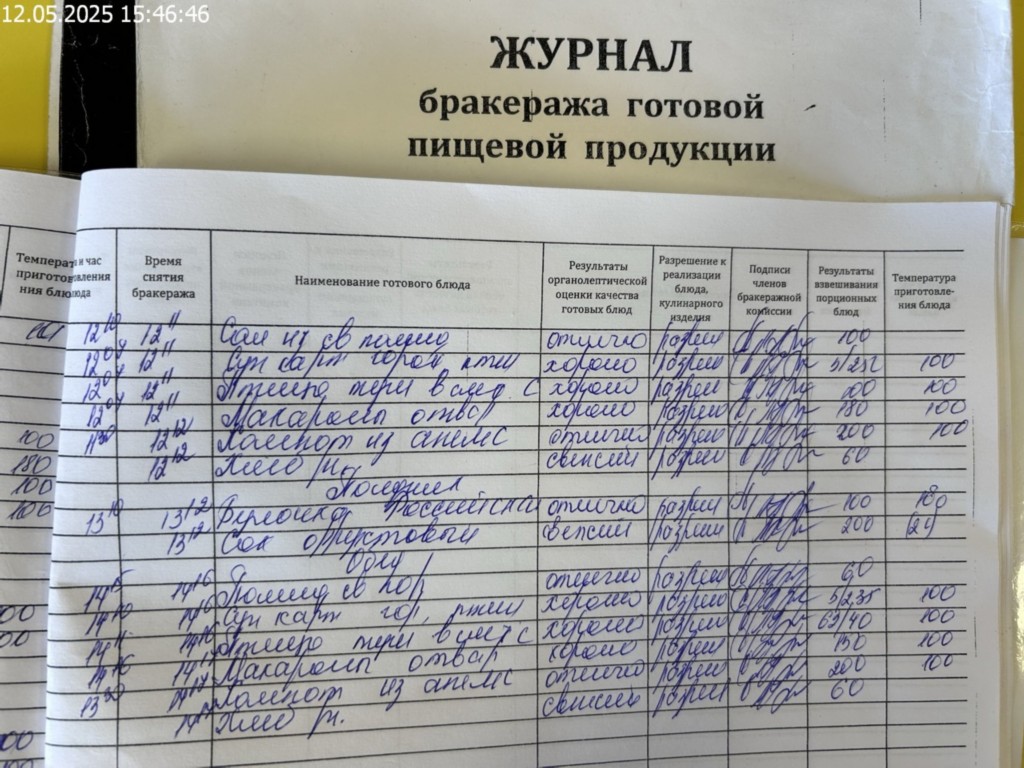 12.05.2025 15:46:46
ЖУРНАЛ
бракеража готовой
пищевой продукции
Температ и час
приготов вления
ния блю юда
Время
снятия
бракеража
Наименование готового блюда
Результаты
органолептической
оценки качества
готовых блюд
Разрешение к
реализации
блюда,
кулинарного
изделия
Подписи
членов
бракеражной
комиссии
Результаты
взвешивания
порционных
блюд
Температура
приготовле-
ния блюда
12 10 12 11 Сал из св помид отлично разреш 100
12 09 12 11 Суп карт горох птиц хорошо разреш 5/232 100
12 09 12 11 Птица туш в смет с хорошо разреш 100
12 09 12 11 Макароны отвар хорошо разреш 180 100
100 11 30 12 12 Компот из апельс отлично разреш 200 100
180 12 12 Хлеб рж. разреш 60
100 Полдник
100 13 10 13 12 Российская отлично разреш 100 180
13 12 Сок фруктовый разреш 200
Обед
14 15 14 16 Помид св пор отлично разреш 60
14 10 14 16 Суп карт гор, птиц хорошо разреш 5/235 100
14 11 14 16 Птица туш в смет с хорошо разреш 100
14 16 14 17 Макароны отвар хорошо разреш 150 100
13 30 14 17 Компот из апельс отлично разреш 200 100
14 17 Хлеб рж. разреш 60